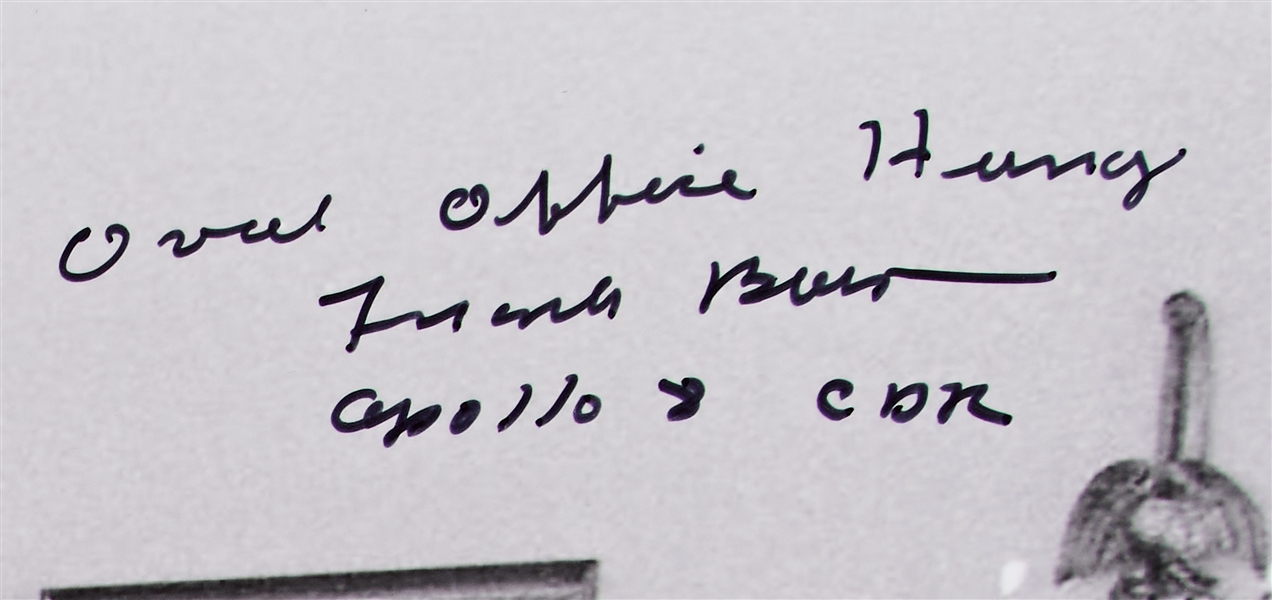 Oval Office Hung
Frank Borman
Apollo 8 CDR